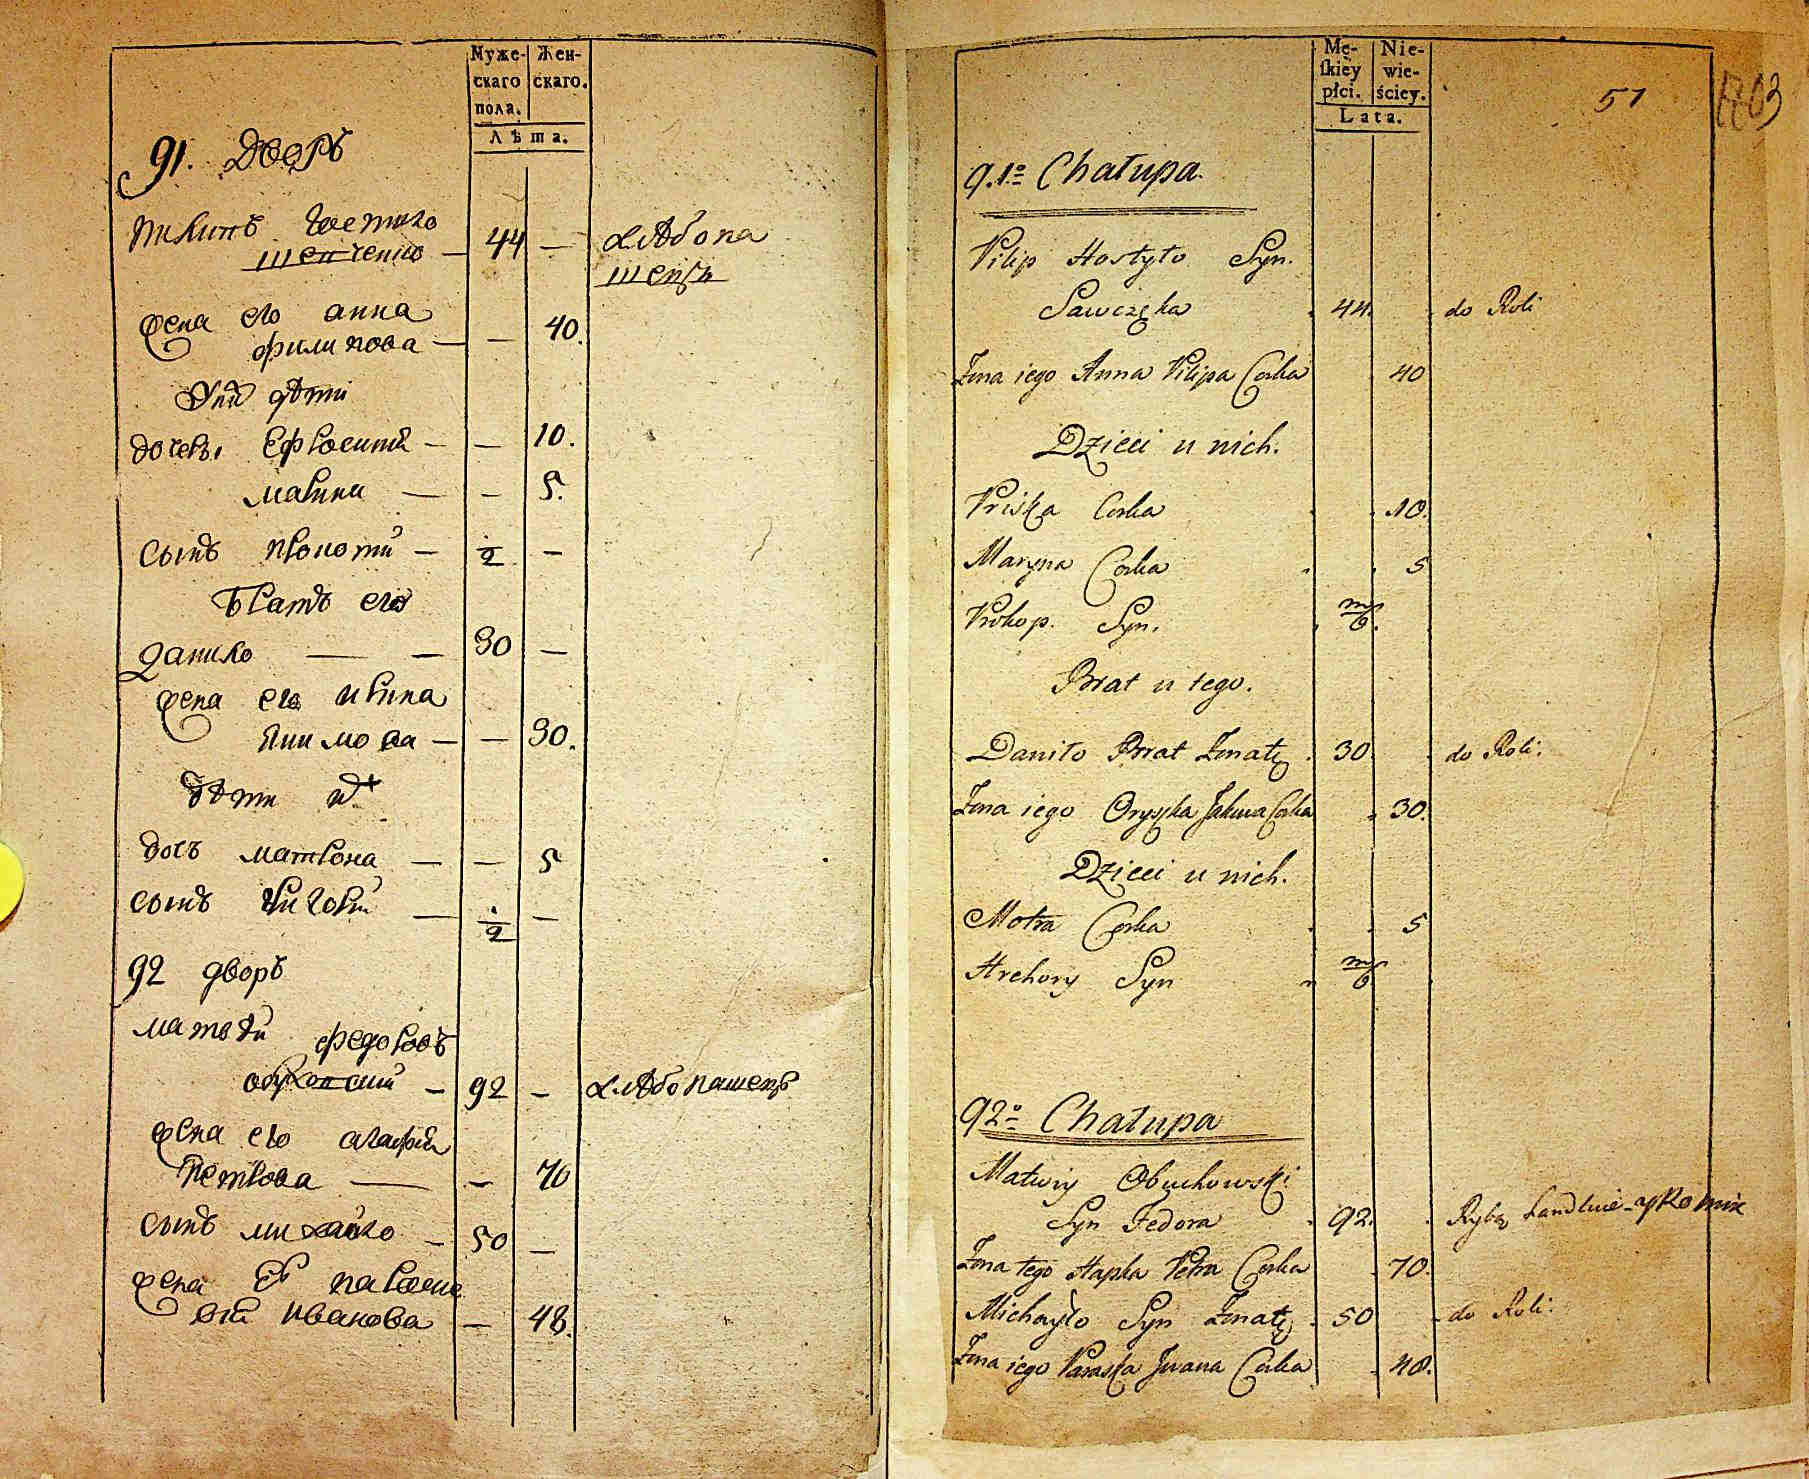 Муже- Жен-
скаго скаго.
пола.
Лѣта.
91. Дворъ
44 — хлѣбопа
шецъ
жена его анна
филипова — — 40.
дѣти
— — 10.
марина — — 5.
сынъ прокопій — ½ —
братъ его
данило — — 30 —
жена его ирина
— — 30.
дѣти
дочь матрона — — 5
сынъ григорій — ½ —
92 дворъ
матвѣй федоровъ
обуховскій — 92 — хлѣбопашецъ
жена его агафія
петрова — — 70
сынъ михайло — 50 —
жена его параске
вія иванова — 48.
Mę- Nie-
skiey wie-
płci. ściey.
Lata.
51
91º Chałupa.
Filip Hostyło Syn.
Sawczęka 44. do Roli
Żona iego Anna Filipa Corka 40
Dzieci u nich.
Priska Corka 10.
Maryna Corka 5
Prokop. Syn. m/6.
Brat u tego.
Daniło Brat Żonaty 30. do Roli.
Żona iego Oryszka Jakima Corka 30.
Dzieci u nich.
Motra Corka 5
Hrehory Syn m/6
92º Chałupa
Matwiy Obuchowski
Syn Fedora 92. Rybą handluie
Żona tego Hapka Petra Corka 70.
Michayło Syn Żonaty 50 do Roli.
Żona iego Paraska Jwana Corka 48.